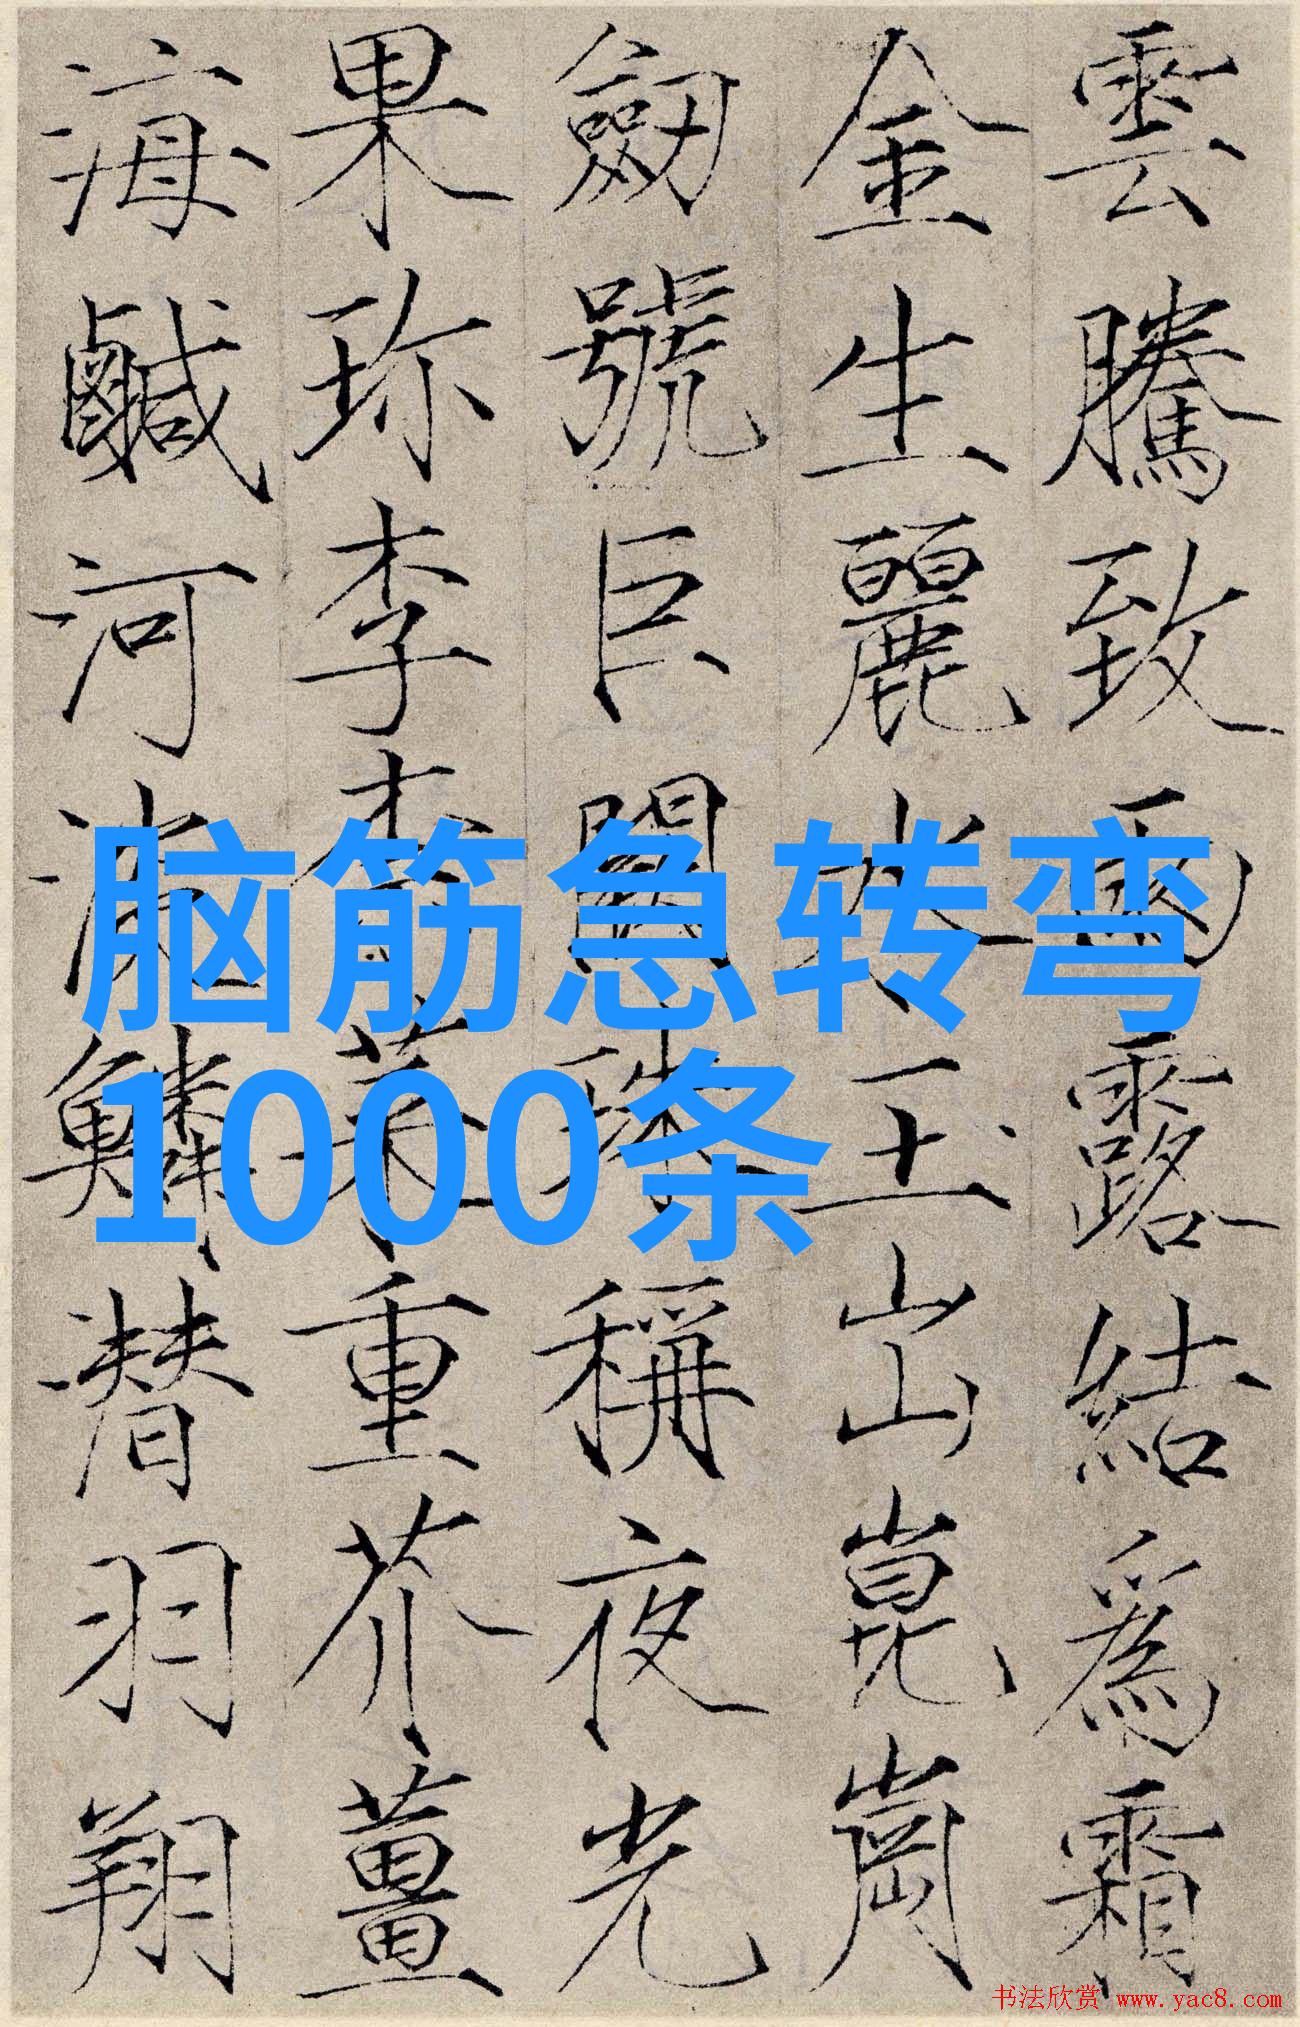 雲騰致雨露結爲霜
金生麗水玉出崑崗
劔號巨闕珠稱夜光
果珎李柰菜重芥薑
海鹹河淡鱗潜羽翔
脑筋急转弯
1000条
书法欣赏 www.yac8.com